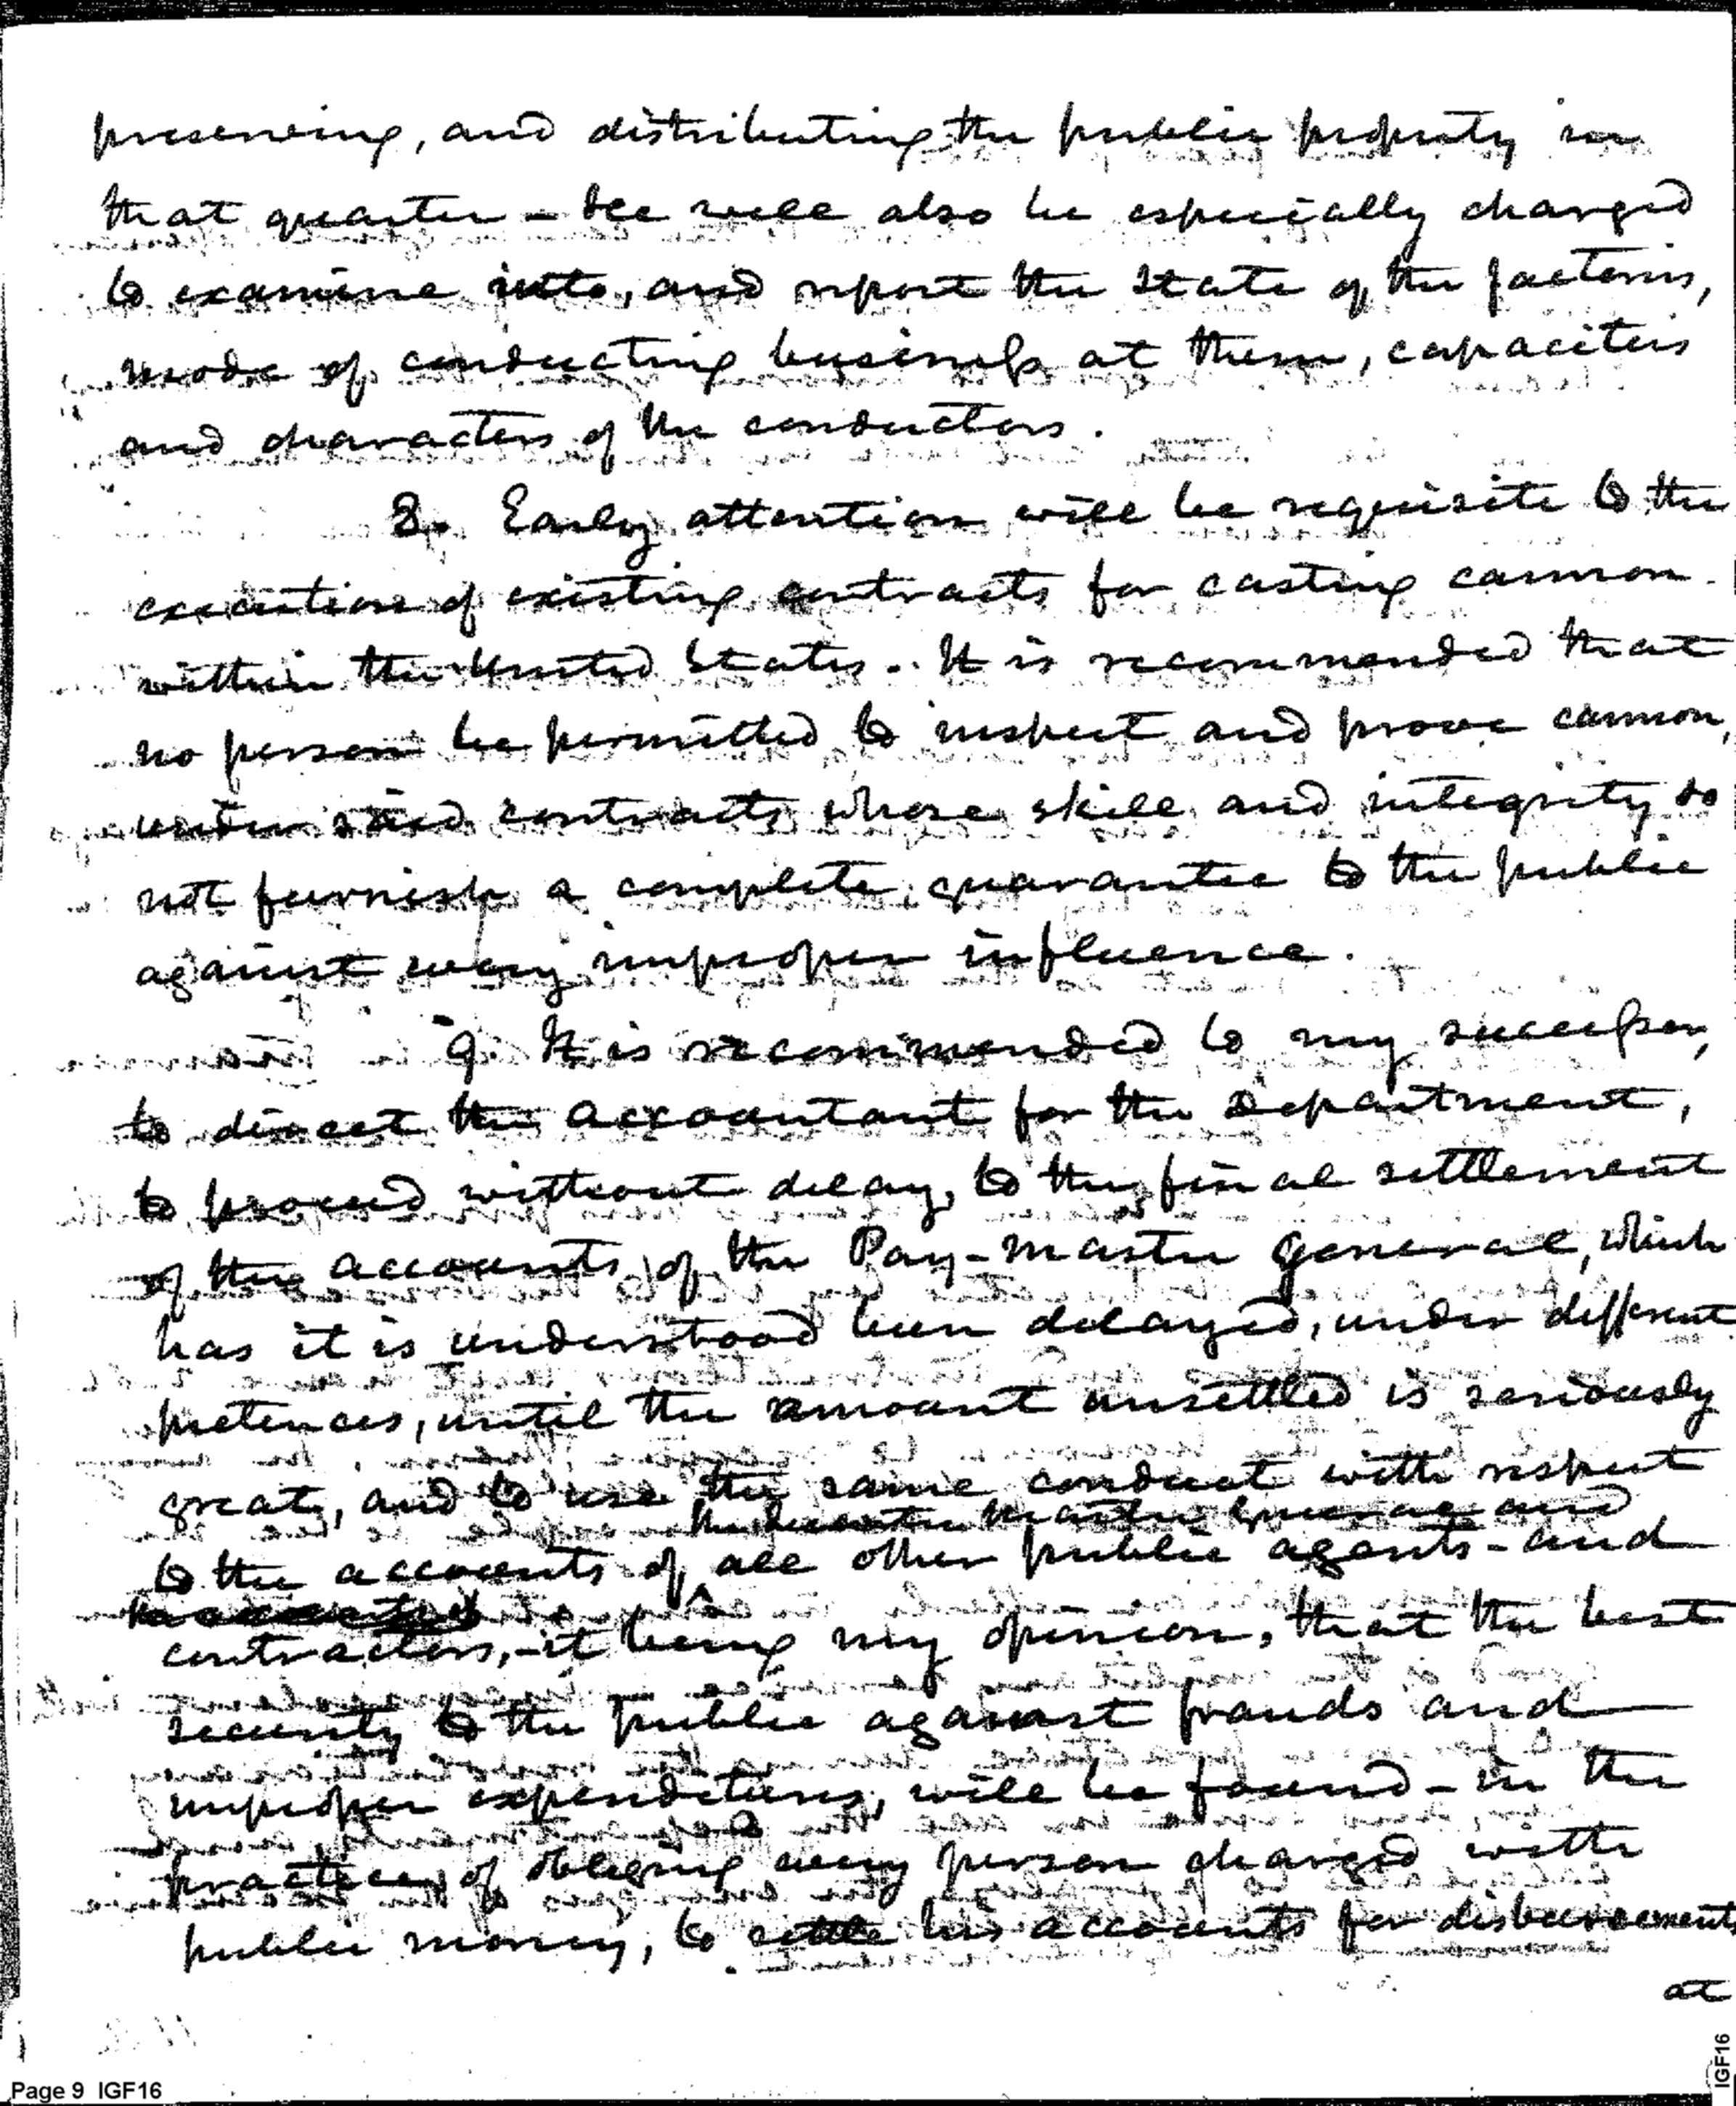 preserving, and distributing the public property in
that quarter – He will also be especially charged
to examine into, and report the state of the factories,
mode of conducting business at them, capacities
and characters of the conductors.
8. Early attention will be requisite to the
execution of existing contracts for casting cannon
within the United States. It is recommended that
no person be permitted to inspect and prove cannon,
under said contracts whose skill and integrity do
not furnish a complete guarantee to the public
against every improper influence.
9. It is recommended to my successor,
to direct the accountant for the Department,
to proceed without delay, to the final settlement
of the accounts of the Pay-Master General, which
has it is understood been delayed, under different
pretences, until the amount unsettled is seriously
great, and to use the same conduct with respect
the Quarter Master General and
to the accounts of all other public agents – and
contractors, – it being my opinion, that the best
security to the public against frauds and
improper expenditures, will be found – in the
practice, of obliging every person charged with
public money, to settle his accounts for disbursements
at
Page 9 IGF16
IGF16